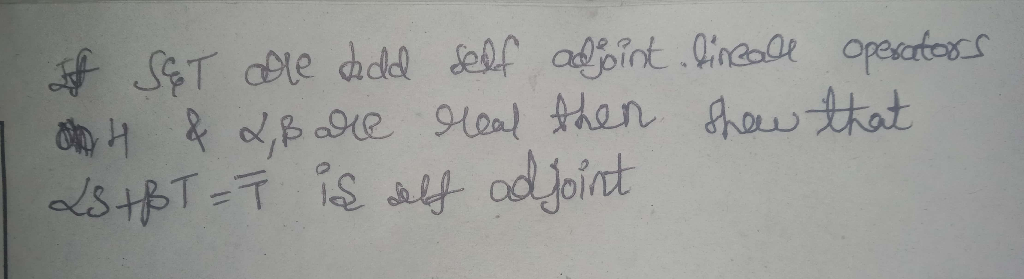 If S & T are bdd self adjoint linear operators
on H & α, β are real then show that
αS + βT = T̅ is self adjoint